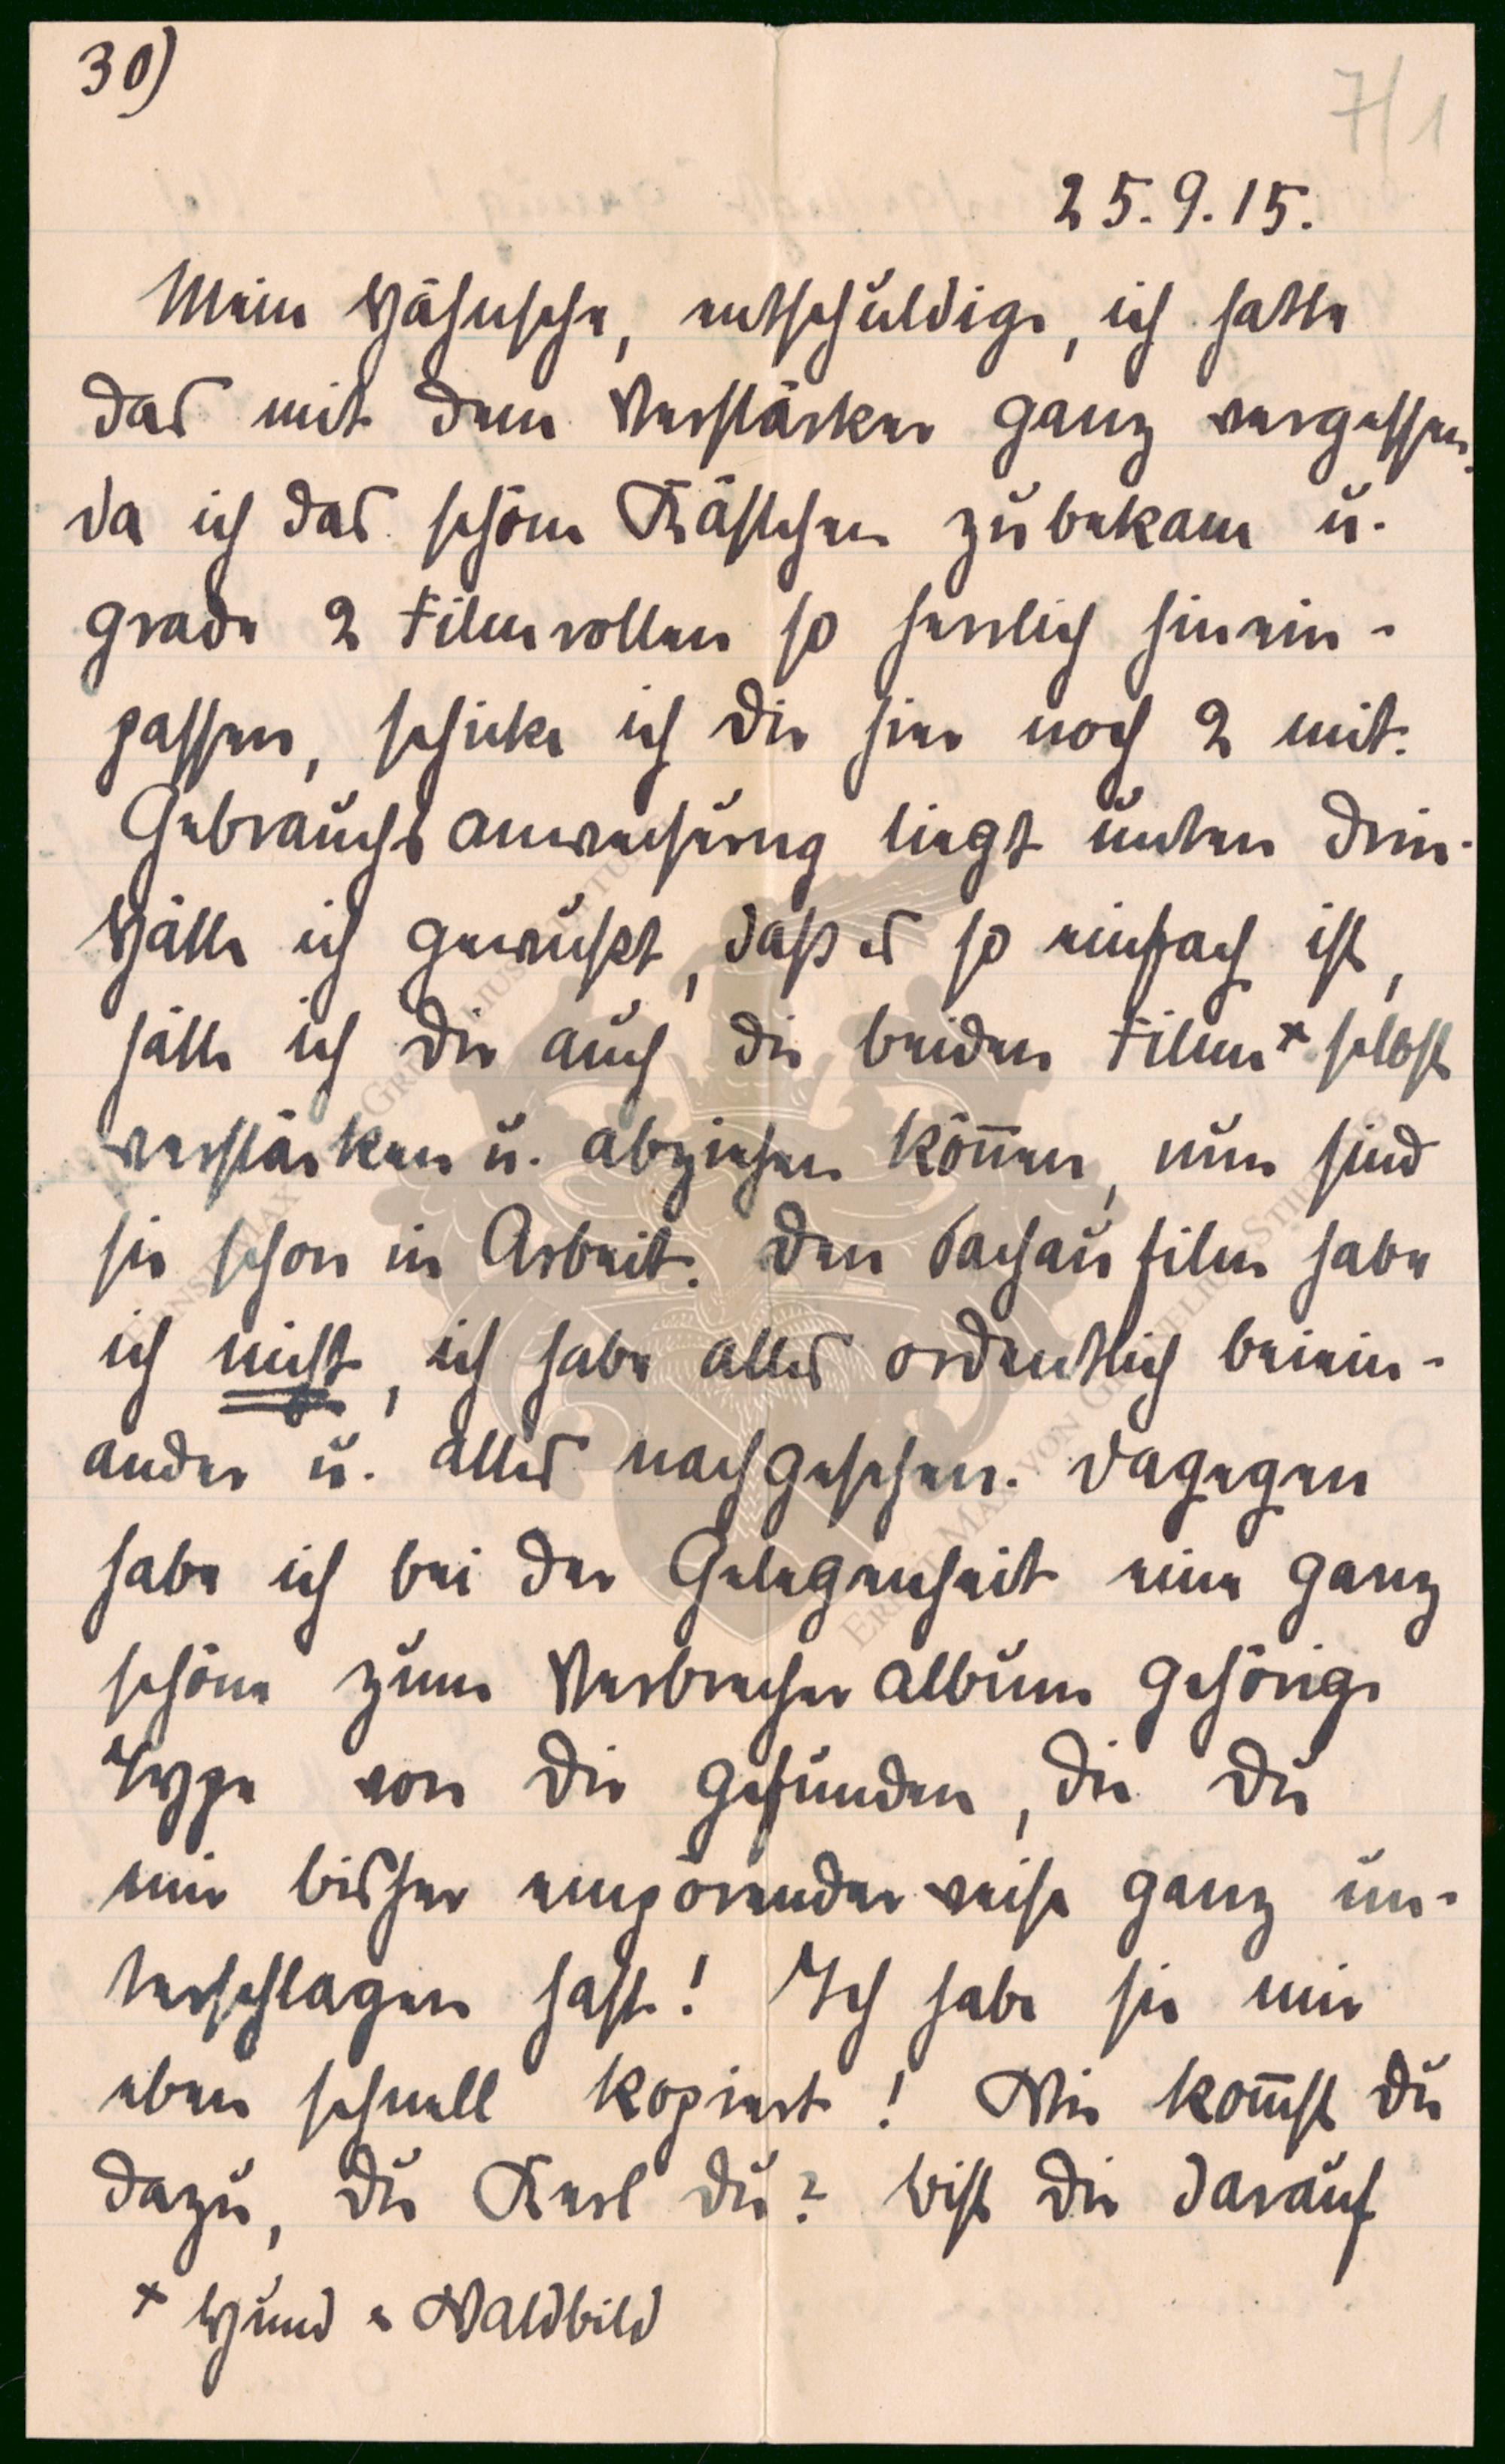 30)
7/1
25.9.15.
Mein Hähnsche, entschuldige, ich hatte
das mit dem Verstärker ganz vergessen.
Da ich das schöne Kästchen zubekam u.
grade 2 Filmrollen so herrlich hinein-
passen, schicke ich Dir hier noch 2 mit.
Gebrauchsanweisung liegt unten drin.
Hätte ich gewußt, daß es so einfach ist,
hätte ich Dir auch die beiden Filme+ selbst
verstärken u. abziehen können, nun sind
sie schon in Arbeit. Den Dachaufilm habe
ich nicht, ich habe alles ordentlich beiein-
ander u. alles nachgesehen. Dagegen
habe ich bei der Gelegenheit eine ganz
schöne zum Verbrecheralbum gehörige
Type von Dir gefunden, die Du
mir bisher empörenderweise ganz un-
terschlagen hast! Ich habe sie mir
eben schnell kopiert! Wie kommst Du
dazu, Du Kerl Du? bist Du darauf
+ Hund & Waldbild
ERNST MAX VON GRIMMELIUS STIFTUNG